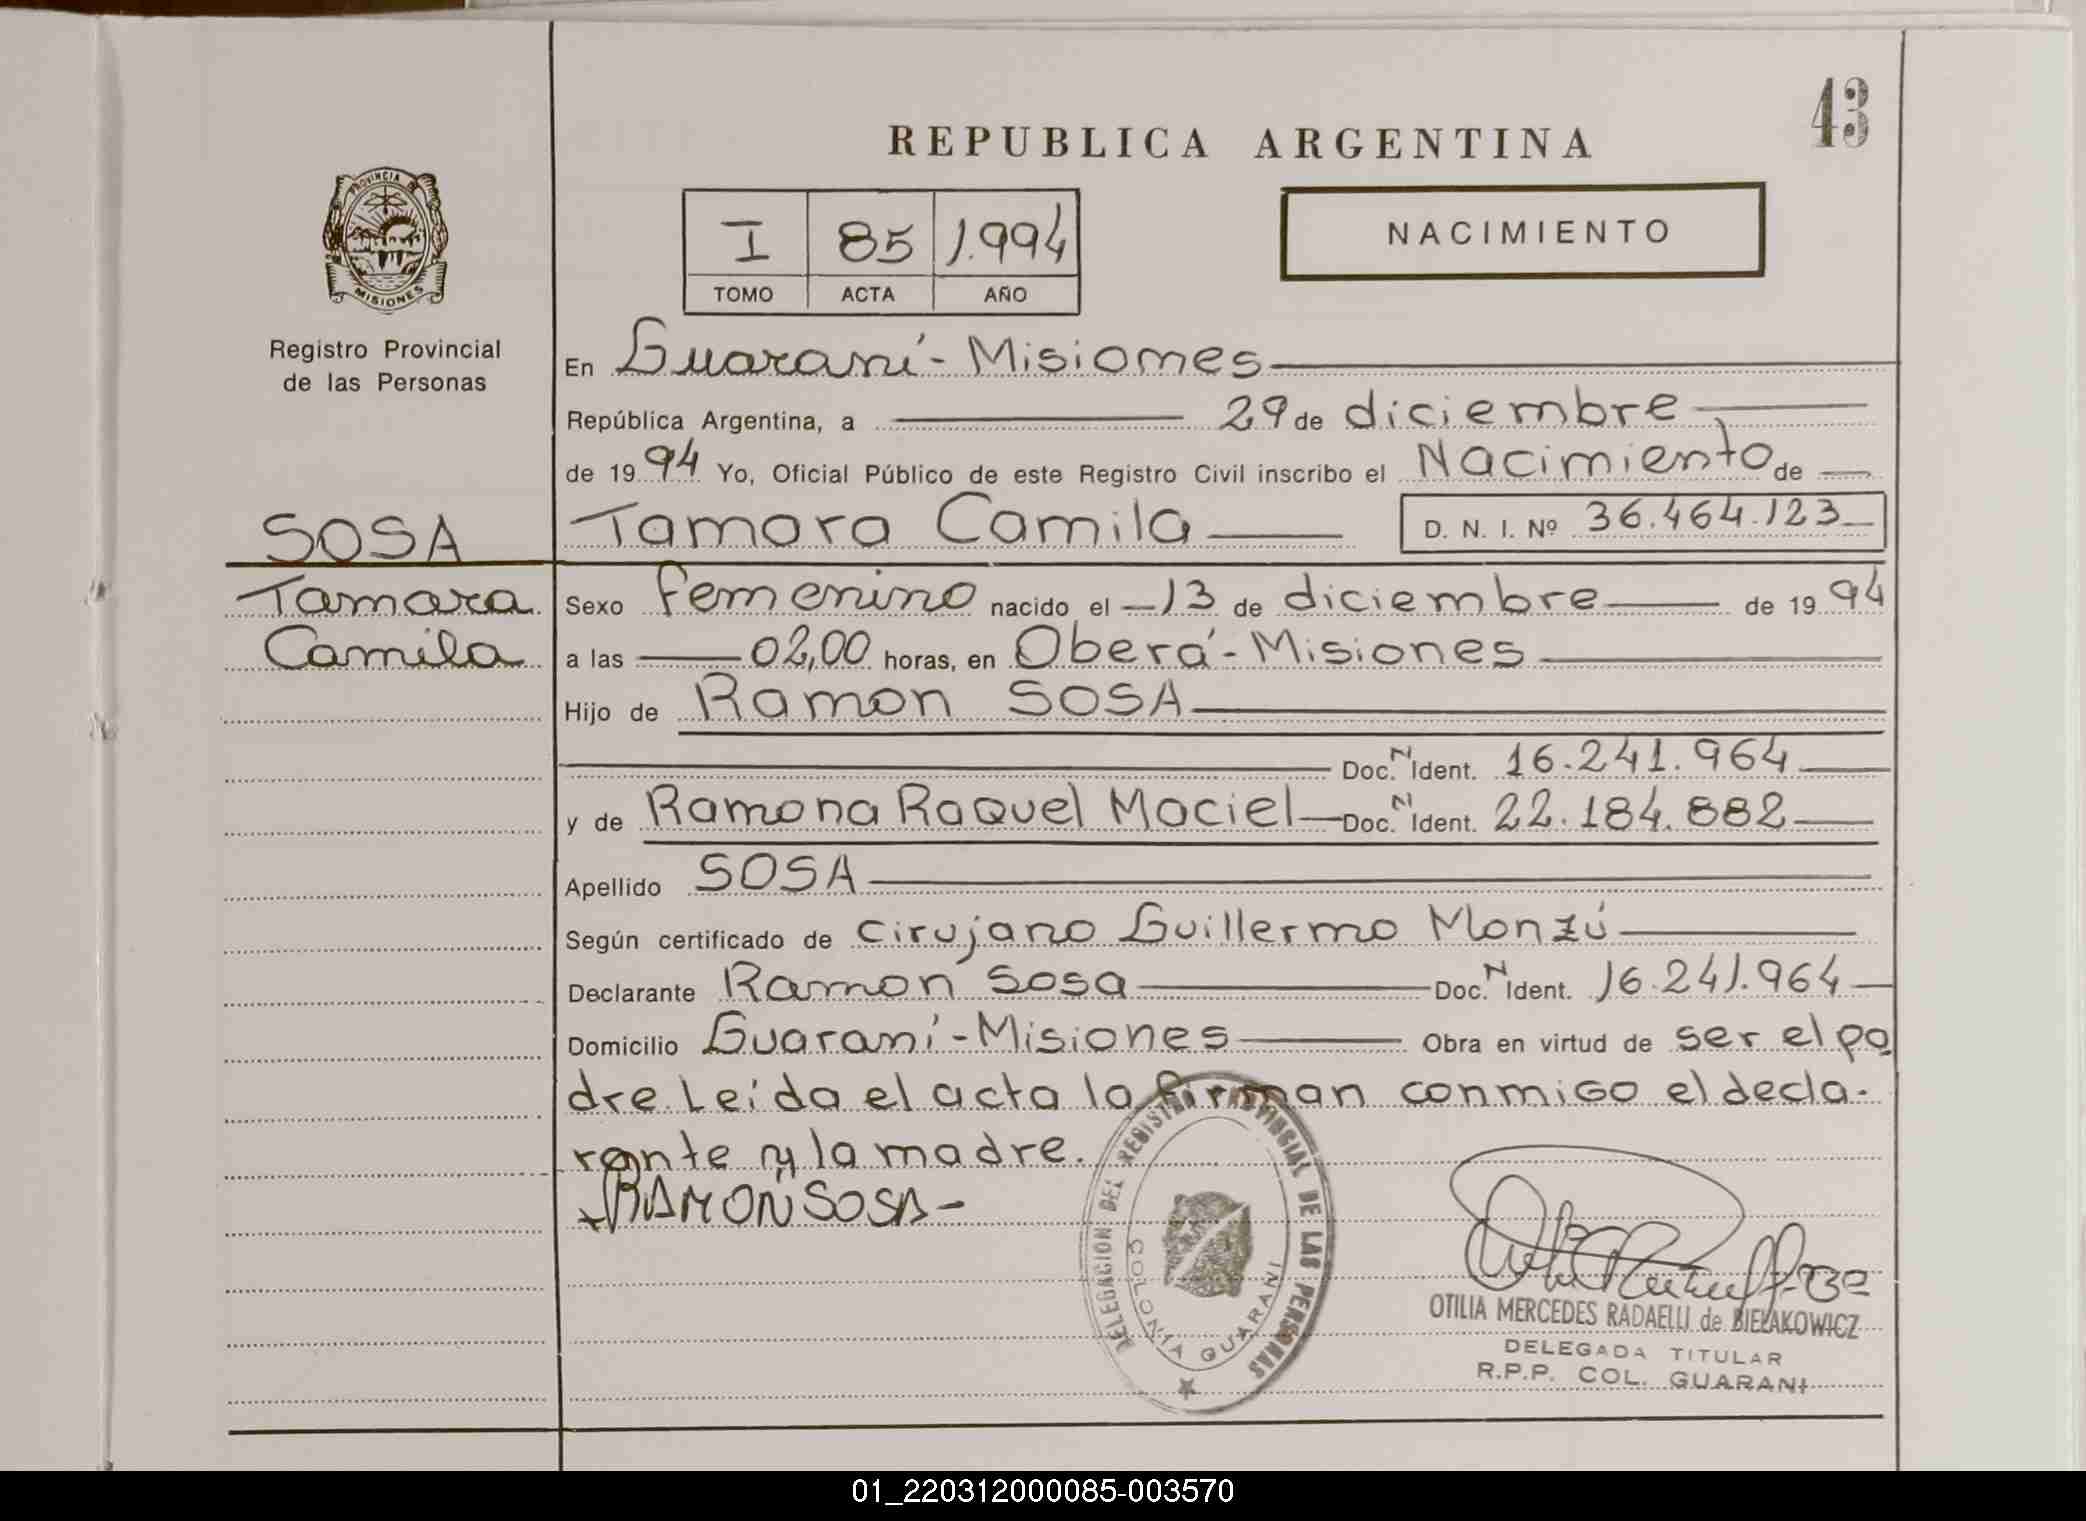 43
REPUBLICA ARGENTINA
PROVINCIA DE
MISIONES
Registro Provincial
de las Personas
I 85 1.994
TOMO ACTA AÑO
NACIMIENTO
En Guaraní-Misiones
República Argentina, a 29 de diciembre
de 1994 Yo, Oficial Público de este Registro Civil inscribo el Nacimiento de
SOSA
Tamara Camila D. N. I. Nº 36.464.123
Tamara
Camila
Sexo femenino nacido el 13 de diciembre de 1994
a las 02,00 horas, en Oberá-Misiones
Hijo de Ramon SOSA
Doc. N Ident. 16.241.964
y de Ramona Raquel Maciel Doc. N Ident. 22.184.882
Apellido SOSA
Según certificado de cirujano Guillermo Monzú
Declarante Ramon Sosa Doc. N Ident. 16.241.964
Domicilio Guaraní-Misiones Obra en virtud de ser el pa
dre. Leída el acta la firman conmigo el decla-
rante y la madre.
RAMON SOSA
DELEGACION DEL REGISTRO PROVINCIAL DE LAS PERSONAS
COLONIA GUARANI
OTILIA MERCEDES RADAELLI de BIELAKOWICZ
DELEGADA TITULAR
R.P.P. COL. GUARANI
01_220312000085-003570